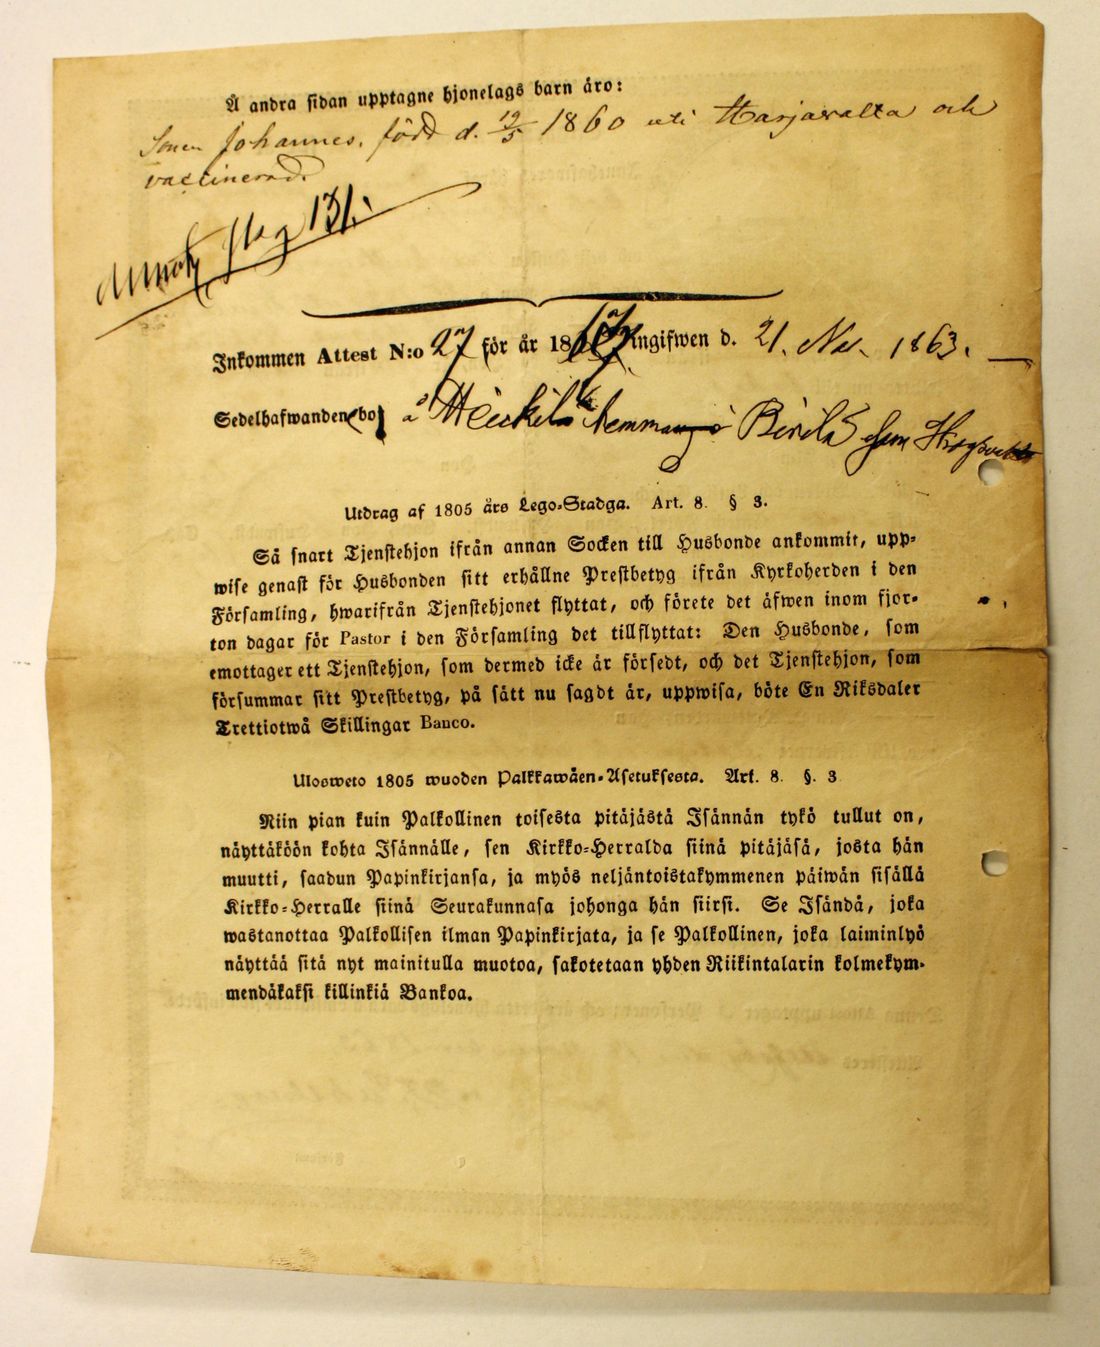 Å andra sidan upptagne hjonelags barn äro:
Sonen Johannes, född d. 19/5 1860 uti Harjavalta och
vaccinerad.
pag 131.
Inkommen Attest N:o 27 för år 186 ingifwen d. 21. Nov. 1863.
Sedelhafwanden bo å Heikilä hemman i
Utdrag af 1805 års Lego-Stadga. Art. 8. § 3.
Så snart Tjenstehjon ifrån annan Socken till Husbonde ankommit, upp-
wise genast för Husbonden sitt erhållne Prestbetyg ifrån Kyrkoherden i den
Församling, hwarifrån Tjenstehjonet flyttat, och förete det äfwen inom fjor-
ton dagar för Pastor i den Församling det tillflyttat: Den Husbonde, som
emottager ett Tjenstehjon, som dermed icke är försedt, och det Tjenstehjon, som
försummar sitt Prestbetyg, på sätt nu sagdt är, uppwisa, böte En Riksdaler
Trettiotwå Skillingar Banco.
Ulosweto 1805 wuoden Palkkawäen-Asetuksesta. Art. 8. §. 3
Niin pian kuin Palkollinen toisesta pitäjästä Isännän tykö tullut on,
näyttäköön kohta Isännälle, sen Kirkko-Herralda siinä pitäjäsä, josta hän
muutti, saadun Papinkirjansa, ja myös neljäntoistakymmenen päiwän sisällä
Kirkko-Herralle siinä Seurakunnasa johonga hän siirsi. Se Isändä, joka
wastanottaa Palkollisen ilman Papinkirjata, ja se Palkollinen, joka laiminlyö
näyttää sitä nyt mainitulla muotoa, sakotetaan yhden Riikintalarin kolmekym-
mendäkaksi killinkiä Bankoa.